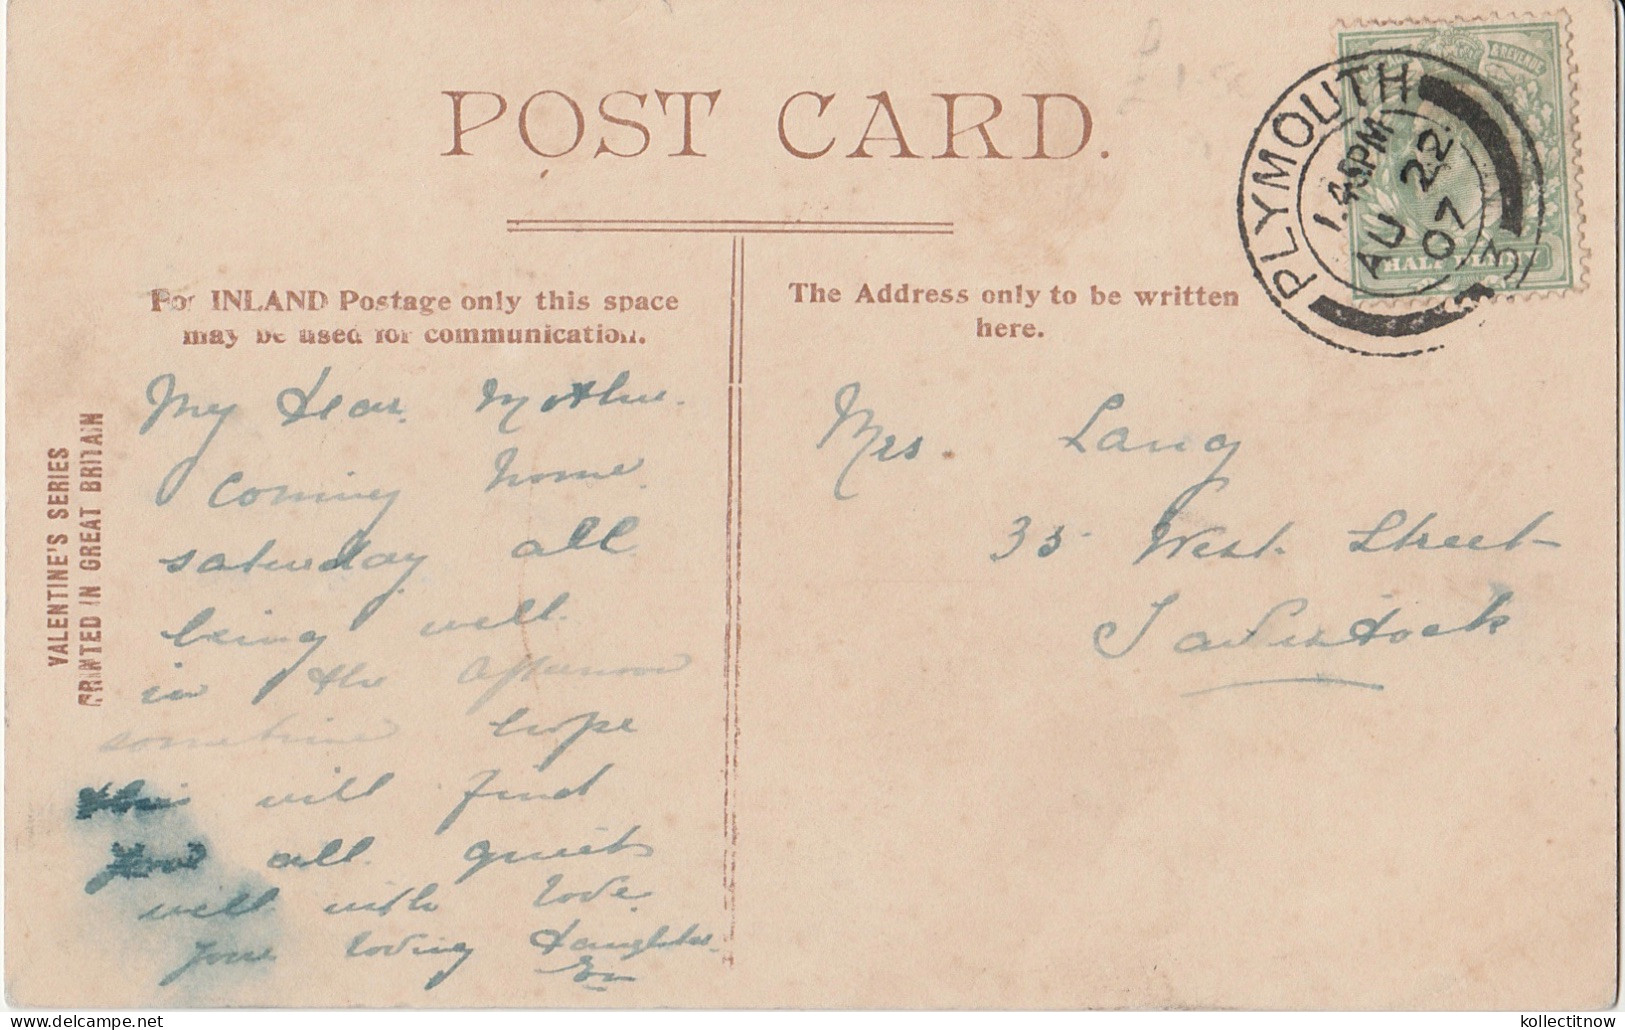 POST CARD.
For INLAND Postage only this space
may be used for communication.
The Address only to be written
here.
VALENTINE'S SERIES
PRINTED IN GREAT BRITAIN
PLYMOUTH
1.40PM
AU 22
07
3
HALF PENNY
My dear Mother.
Coming home
saturday all
being well.
in the afternoon
sometime hope
this will find
you all quite
well with love.
your loving daughter
Mrs. Lang
35 West Street
Tavistock
kollectitnow